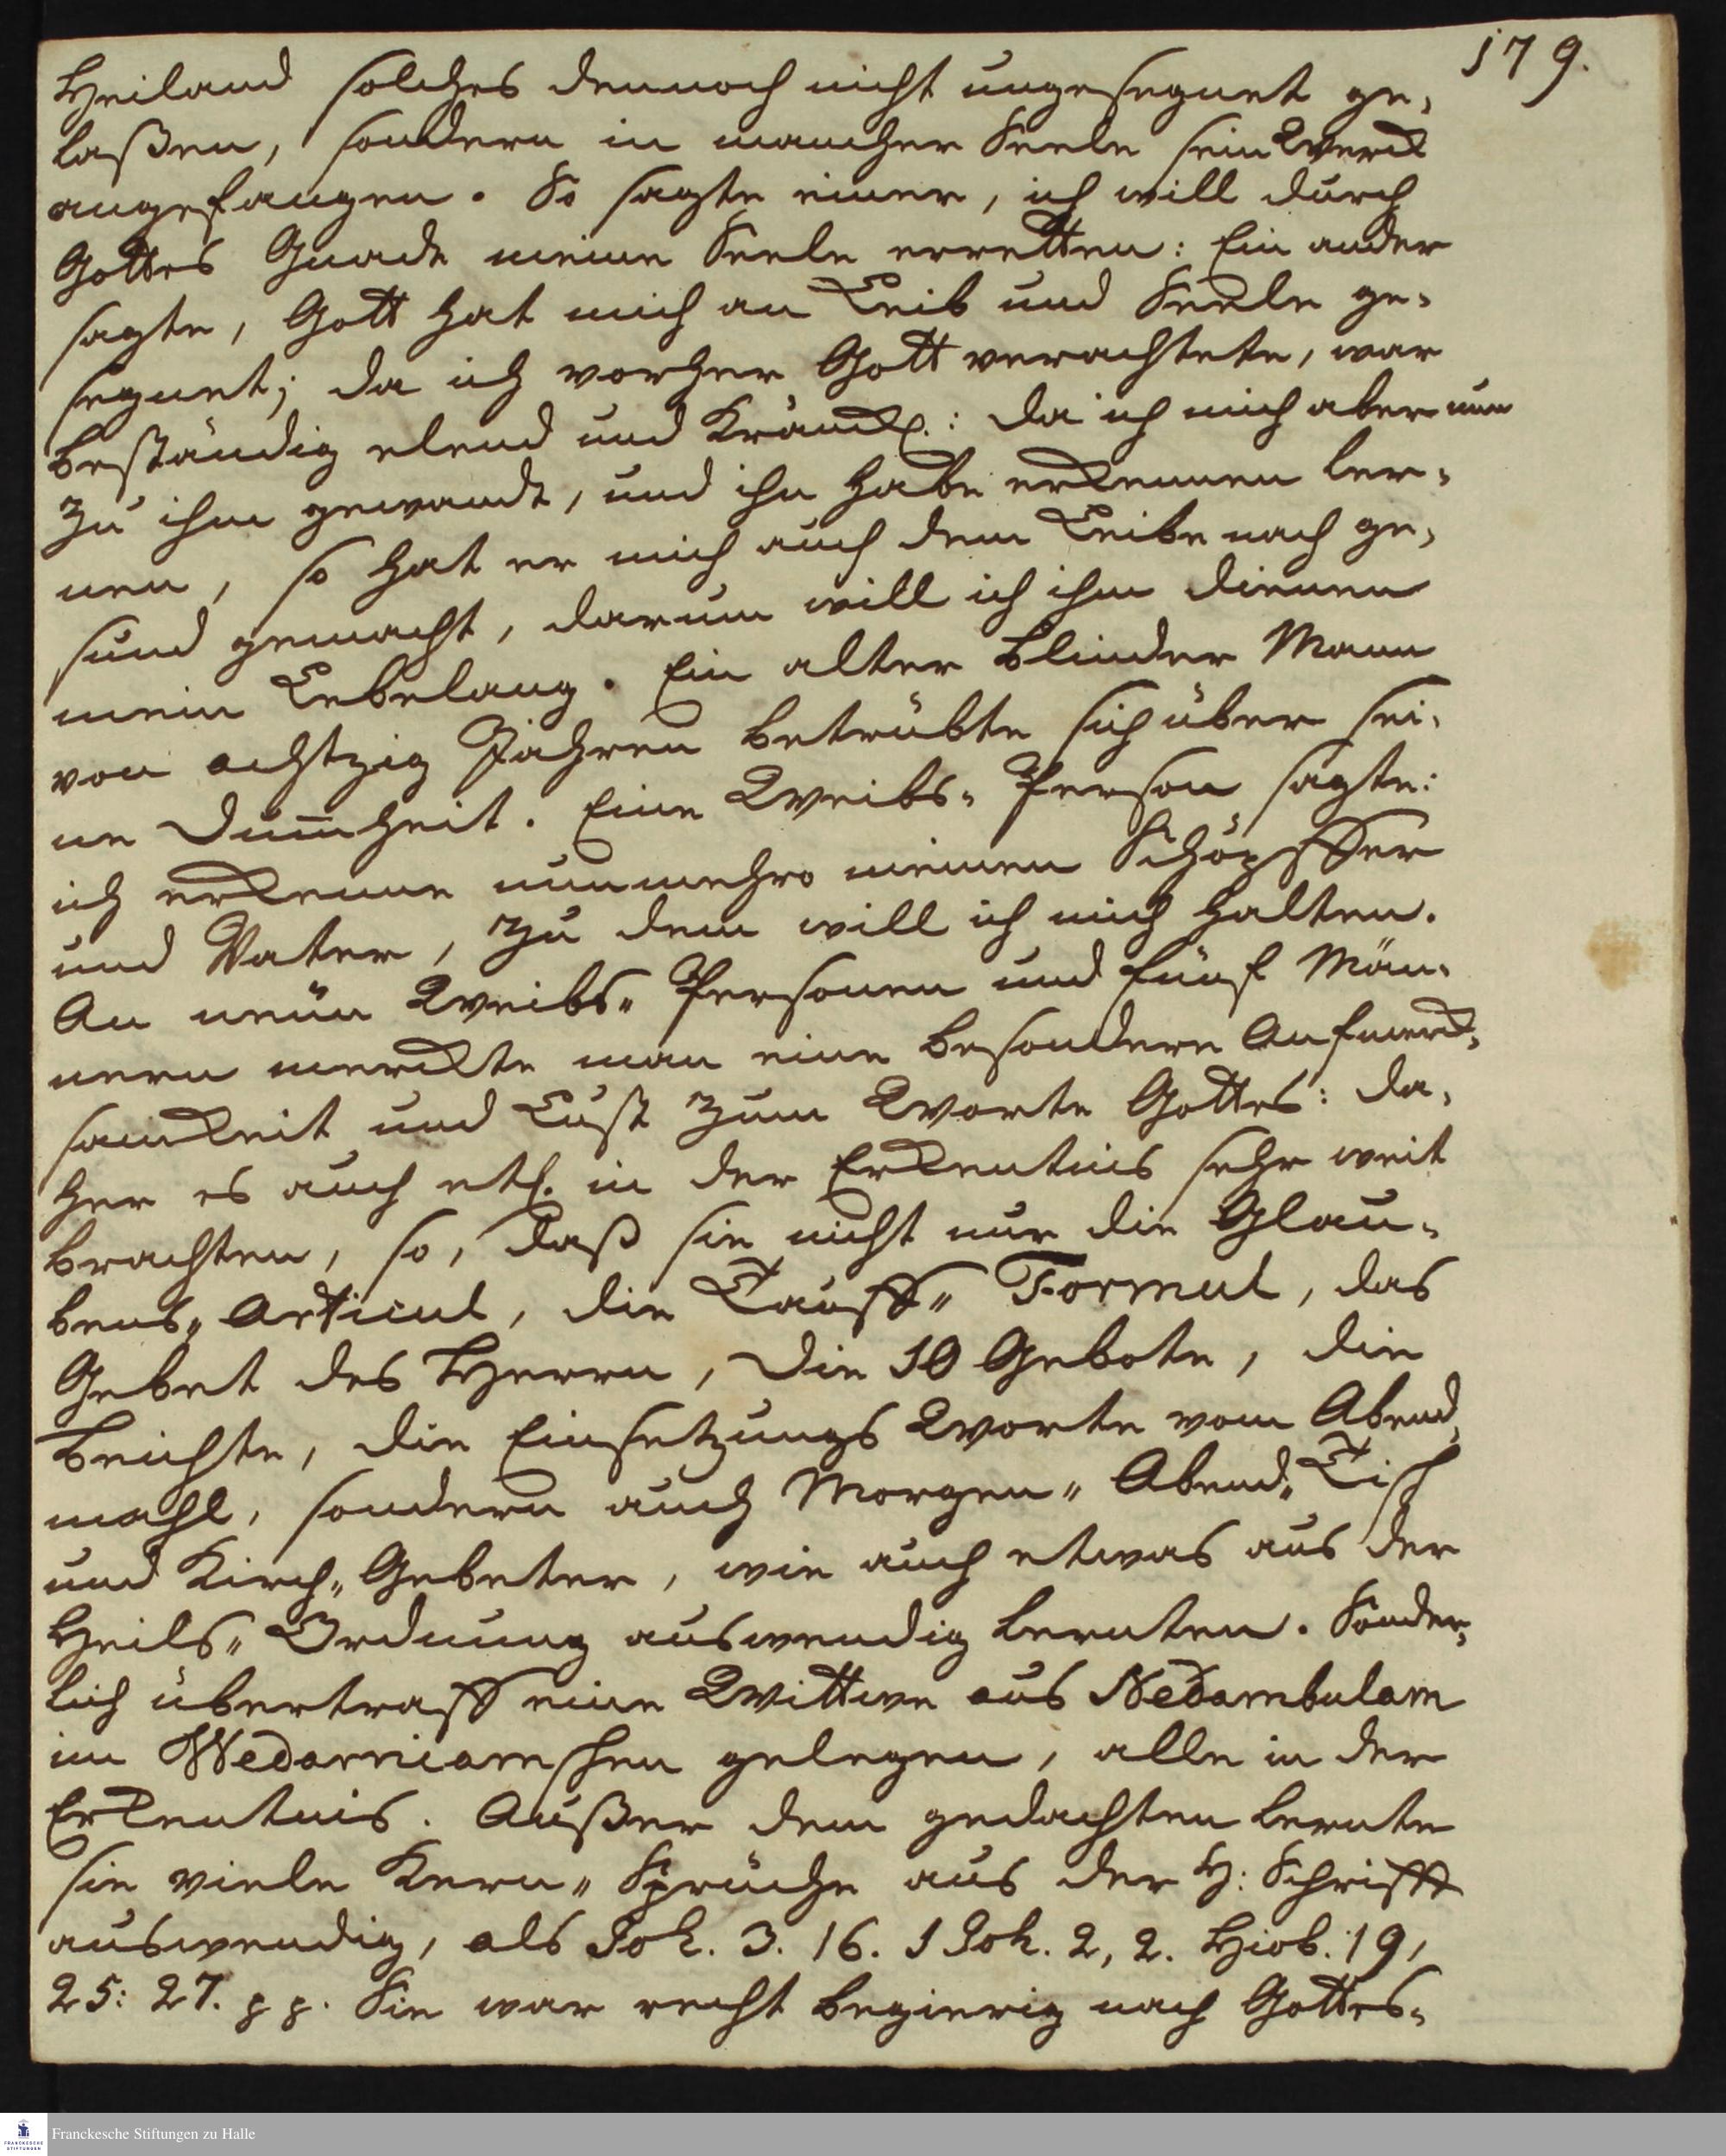 179.
Heiland solches dennoch nicht ungesegnet ge-
laßen, sondern in mancher Seele sein Werck
angefangen. So sagte einer, ich will durch
Gottes Gnade meine Seele erretten: Ein ander
sagte, Gott hat mich an Leib und Seele ge-
segnet; da ich vorher Gott verachtete, war
beständig elend und kränckl.: da ich mich aber nun
zu ihm gewandt, und ihn habe erkennen ler-
nen, so hat er mich auch dem Leibe nach ge-
sund gemacht, darum will ich ihm dienen
mein Lebelang. Ein alter blinder Mann
von achtzig Jahren betrübte sich über sei-
ne Dum̄heit. Eine Weibs-Person sagte:
ich erkenne nunmehro meinen Schöpffer
und Vater, zu dem will ich mich halten.
An neun Weibs-Personen und fünf Män-
nern merckte man eine besondere Aufmerck-
samkeit und Lust zum Worte Gottes: da-
her es auch etl. in der Erkentnis sehr weit
brachten, so, daß sie nicht nur die Glau-
bens-Articul, die Tauff-Formul, das
Gebet des Herrn, die 10 Gebote, die
Beichte, die Einsetzungs Worte vom Abend-
mahl, sondern auch Morgen-Abend-Tisch
und Kirch-Gebeter, wie auch etwas aus der
Heils-Ordnung auswendig lernten. Sonder-
lich übertraff eine Wittwe aus Nedambulam
im Wedarniamschen gelegen, alle in der
Erkentnis. Außer dem gedachten lernte
sie viele Kern-Sprüche aus der H: Schrifft
auswendig, als Joh. 3. 16. 1 Joh. 2, 2. Hiob. 19,
25: 27. pp. Sie war recht begierig nach Gottes-
Franckesche Stiftungen zu Halle